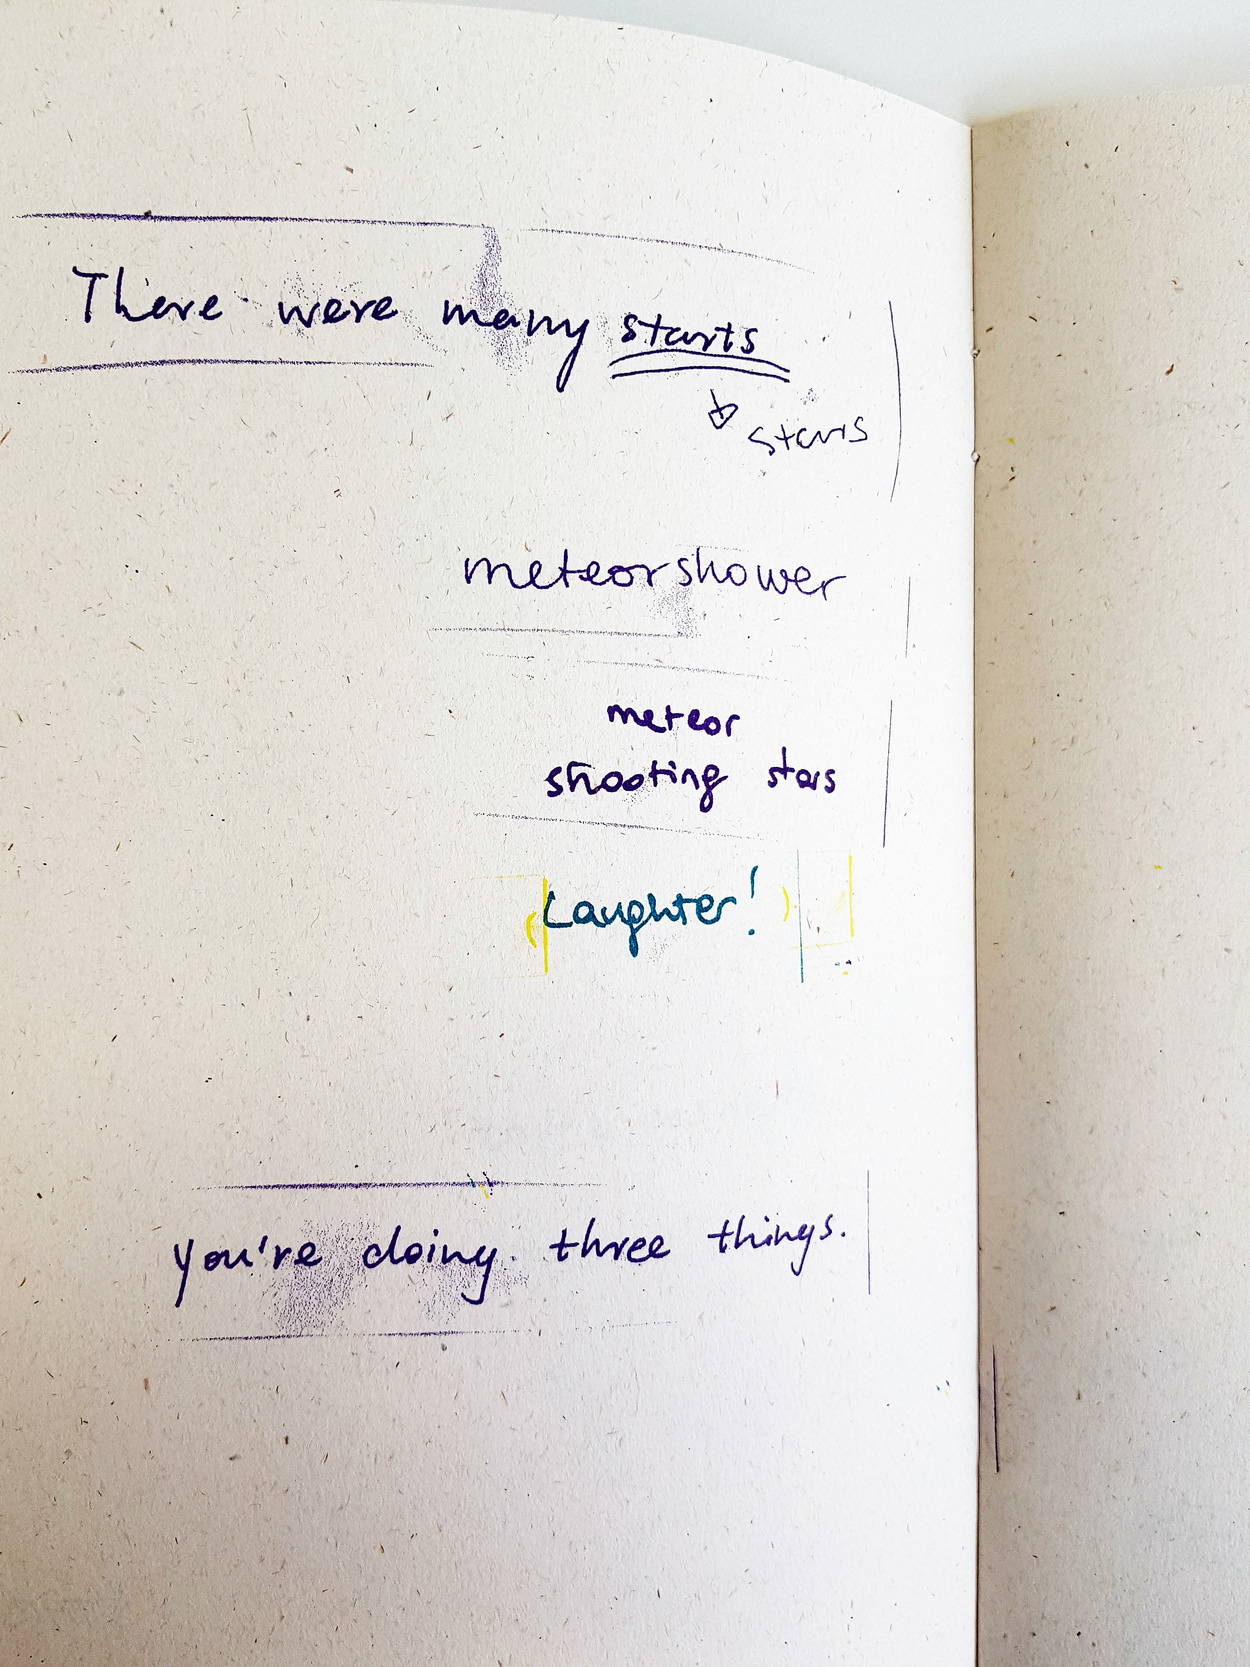 There were many starts
stars
meteorshower
meteor
shooting stars
Laughter!
you're doing three things.